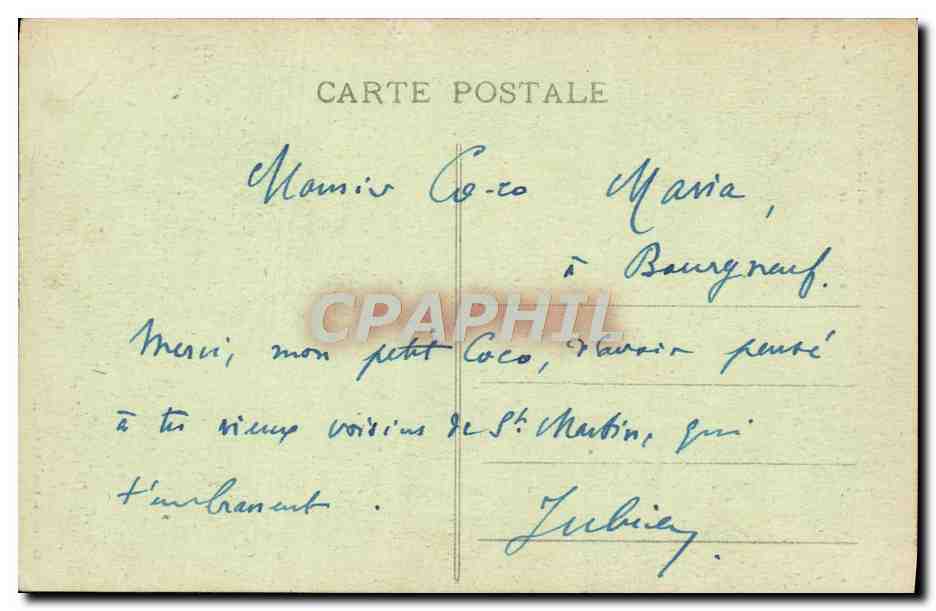 CARTE POSTALE
Monsieur Co-co Maria,
à Bourgneuf.
CPAPHIL
Merci, mon petit Coco, d'avoir pensé
à tes vieux voisins de St. Martin, qui
t'embrassent.